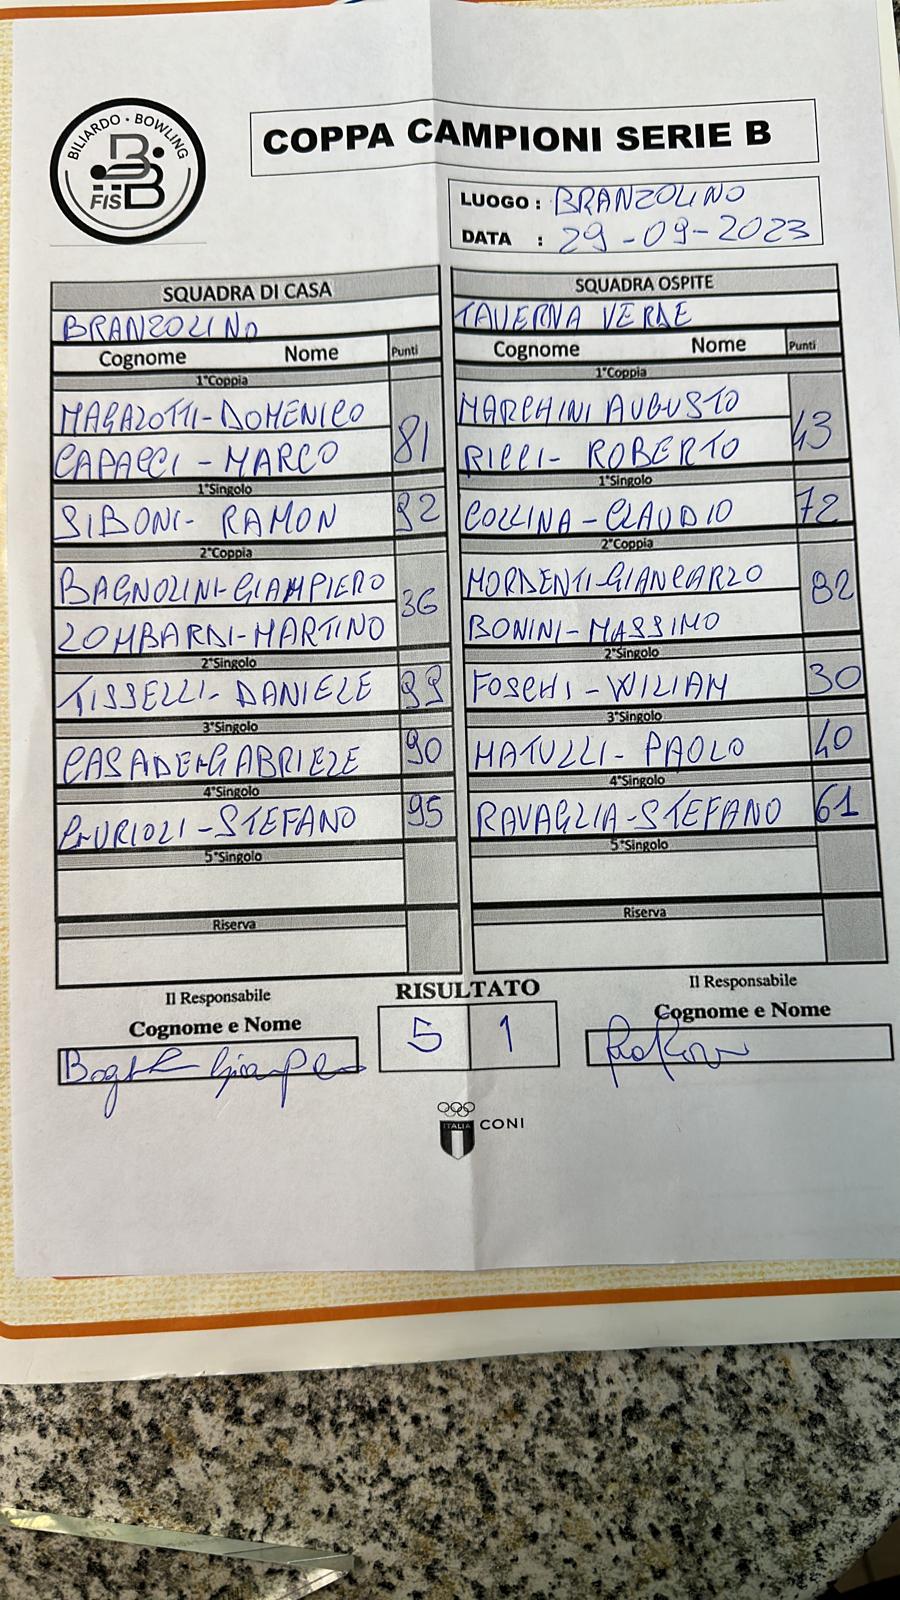 BILIARDO • BOWLING
FISBB
COPPA CAMPIONI SERIE B
LUOGO : BRANZOLINO
DATA : 29-09-2023
SQUADRA DI CASA
BRANZOLINO
Cognome Nome Punti
1°Coppia
MAGAZOTTI-DOMENICO
CAPACCI - MARCO 81
1°Singolo
SIBONI- RAMON 92
2°Coppia
BAGNOLINI-GIAMPIERO
LOMBARDI-MARTINO 36
2°Singolo
TISSELLI- DANIELE 99
3°Singolo
CASADEI-GABRIELE 90
4°Singolo
STEFANO 95
5°Singolo
Riserva
SQUADRA OSPITE
TAVERNA VERDE
Cognome Nome Punti
1°Coppia
MARCHINI AUGUSTO
RICCI- ROBERTO 43
1°Singolo
COLLINA-CLAUDIO 72
2°Coppia
MORDENTI-GIANCARLO
BONINI-MASSIMO 82
2°Singolo
FOSCHI-WILIAM 30
3°Singolo
MATULLI- PAOLO 40
4°Singolo
RAVAGLIA-STEFANO 61
5°Singolo
Riserva
Il Responsabile
Cognome e Nome
RISULTATO
5 1
Il Responsabile
Cognome e Nome
ITALIA
CONI